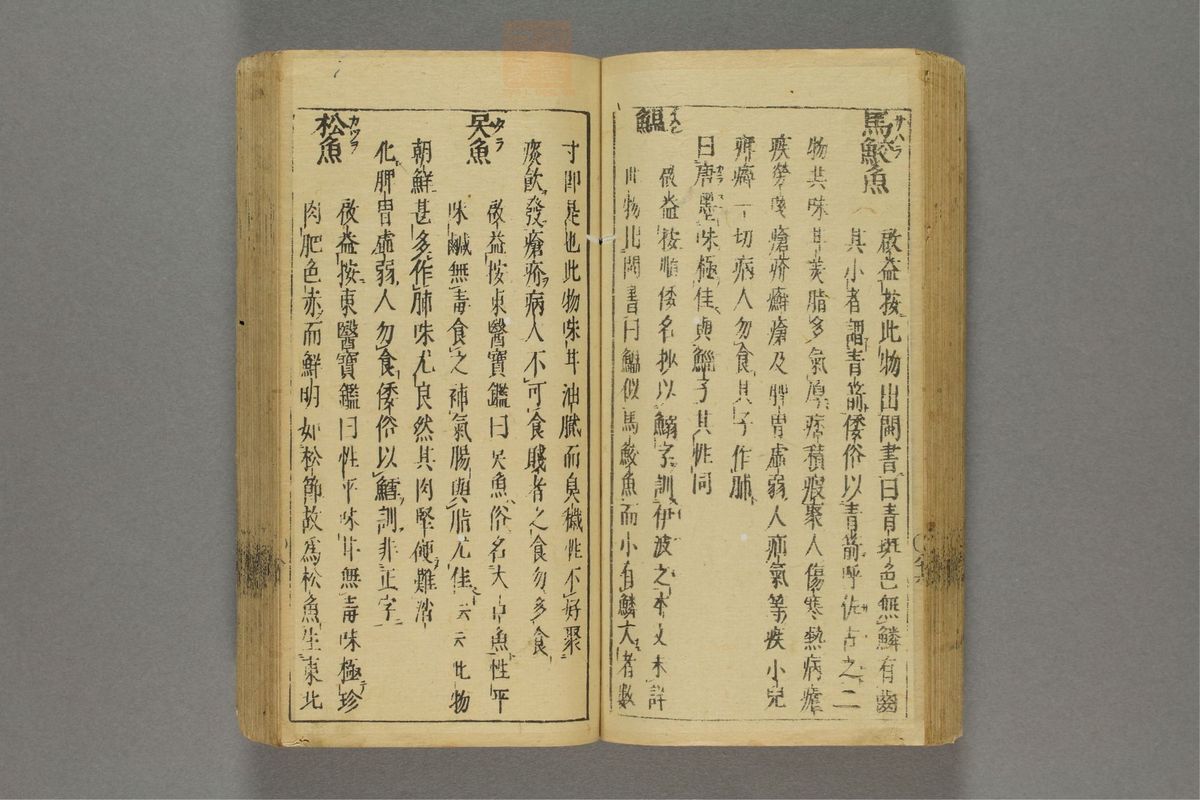 馬鮫魚
サハラ
啟益按此物出閩書曰青斑色無鱗有齒
其小者謂青箭倭俗以青箭呼佐古之二
物其味甘美脂多氣厚痰積瘕聚人傷寒熱病瘧
疾勞嗽瘡疥癬瘡及脾胃虛弱人疝氣等疾小兒
疳一切病人勿食其子作脯
曰唐墨味極佳與鯔子其性同
啟益按順倭名抄以鰯字訓伊波之本文未詳
此物出閩書曰鰛似馬鮫魚而小有鱗大者數
寸即是也此物味甘油膩而臭穢性不好聚
痰飲發瘡疥病人不可食賤者之食勿多食
㕦魚
タラ
啟益按東醫寶鑑曰㕦魚俗名大口魚性平
味鹹無毒食之補氣腸與脂尤佳云云此物
朝鮮甚多作脯味尤良然其肉堅硬難消
化脾胃虛弱人勿食倭俗以鱈訓非正字
松魚
カツヲ
啟益按東醫寶鑑曰性平味甘無毒味極珍
肉肥色赤而鮮明如松節故為松魚生東北